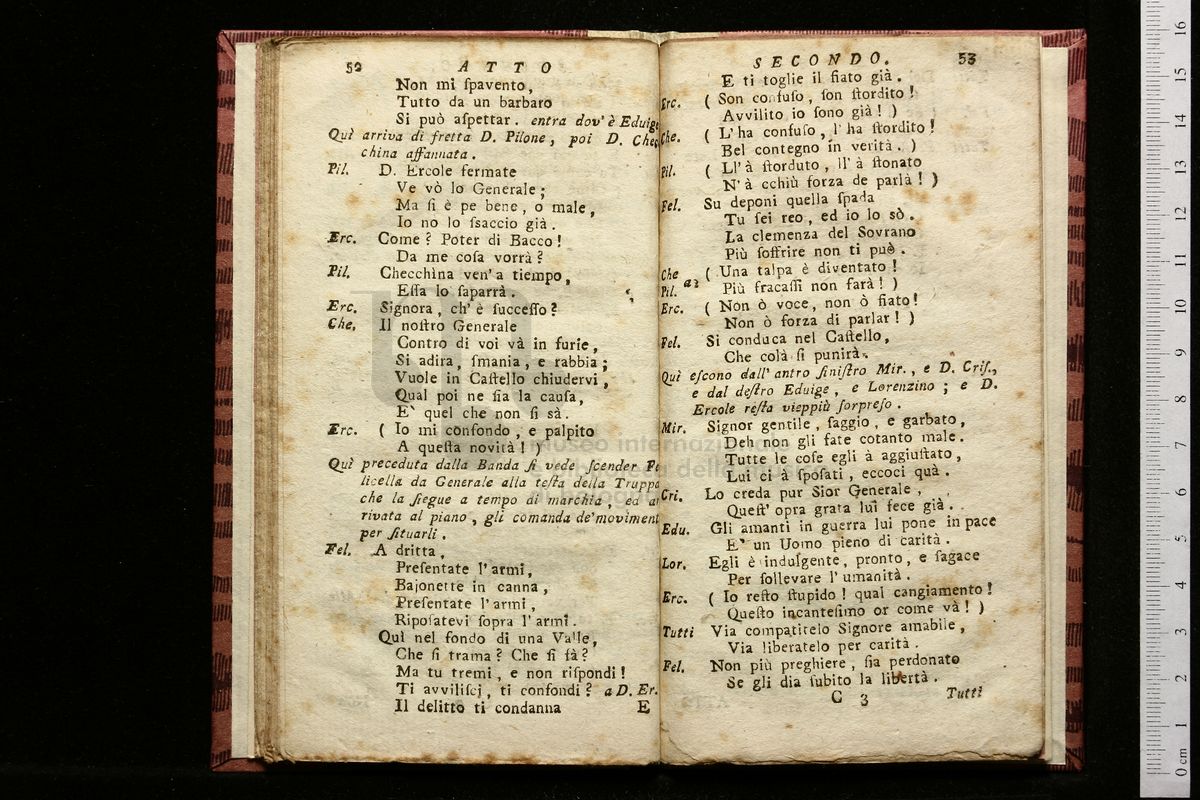 52 ATTO
Non mi ſpavento,
Tutto da un barbaro
Si può aſpettar. entra dov'è Eduige
Quì arriva di fretta D. Pilone, poi D. Chec
china affannata.
Pil. D. Ercole fermate
Ve vò lo Generale;
Ma ſi è pe bene, o male,
Io no lo ſsaccio già.
Erc. Come? Poter di Bacco!
Da me coſa vorrà?
Pil. Checchina ven'a tiempo,
Eſſa lo ſaparrà.
Erc. Signora, ch'è ſucceſſo?
Che. Il noſtro Generale
Contro di voi và in furie,
Si adira, ſmania, e rabbia;
Vuole in Caſtello chiudervi,
Qual poi ne ſia la cauſa,
E` quel che non ſi sà.
Erc. ( Io mi confondo, e palpito
A queſta novità! )
Quì preceduta dalla Banda ſi vede ſcender Fe
licella da Generale alla teſta della Truppa
che la ſiegue a tempo di marchia, ed ar
rivata al piano, gli comanda de'moviment
per ſituarli.
Fel. A dritta,
Preſentate l'armi,
Bajonette in canna,
Preſentate l'armi,
Ripoſatevi ſopra l'armi.
Quì nel fondo di una Valle,
Che ſi trama? Che ſi fà?
Ma tu tremi, e non riſpondi!
Ti avviliſci, ti confondi? a D. Er.
Il delitto ti condanna E
SECONDO. 53
E ti toglie il fiato già.
Erc. ( Son confuſo, ſon ſtordito!
Avvilito io ſono già! )
Che. ( L'ha confuſo, l'ha ſtordito!
Bel contegno in verità. )
Pil. ( Ll'à ſtorduto, ll'à ſtonato
N'à cchiù forza de parlà! )
Fel. Su deponi quella ſpada
Tu ſei reo, ed io lo sò.
La clemenza del Sovrano
Più ſoffrire non ti può.
Che ( Una talpa è diventato!
Pil. a2 Più fracaſſi non farà! )
Erc. ( Non ò voce, non ò fiato!
Non ò forza di parlar! )
Fel. Si conduca nel Caſtello,
Che colà ſi punirà.
Quì eſcono dall'antro ſiniſtro Mir., e D. Criſ.,
e dal deſtro Eduige, e Lorenzino; e D.
Ercole reſta vieppiù ſorpreſo.
Mir. Signor gentile, ſaggio, e garbato,
Deh non gli fate cotanto male.
Tutte le coſe egli à aggiuſtato,
Lui ci à ſpoſati, eccoci quà.
Cri. Lo creda pur Sior Generale,
Queſt'opra grata lui fece già.
Edu. Gli amanti in guerra lui pone in pace
E` un Uomo pieno di carità.
Lor. Egli è indulgente, pronto, e ſagace
Per ſollevare l'umanità.
Erc. ( Io reſto ſtupido! qual cangiamento!
Queſto incanteſimo or come và! )
Tutti Via compatitelo Signore amabile,
Via liberatelo per carità.
Fel. Non più preghiere, ſia perdonato
Se gli dia ſubito la libertà.
C 3 Tutti
16
15
14
13
12
11
10
9
8
7
6
5
4
3
2
1
0 cm